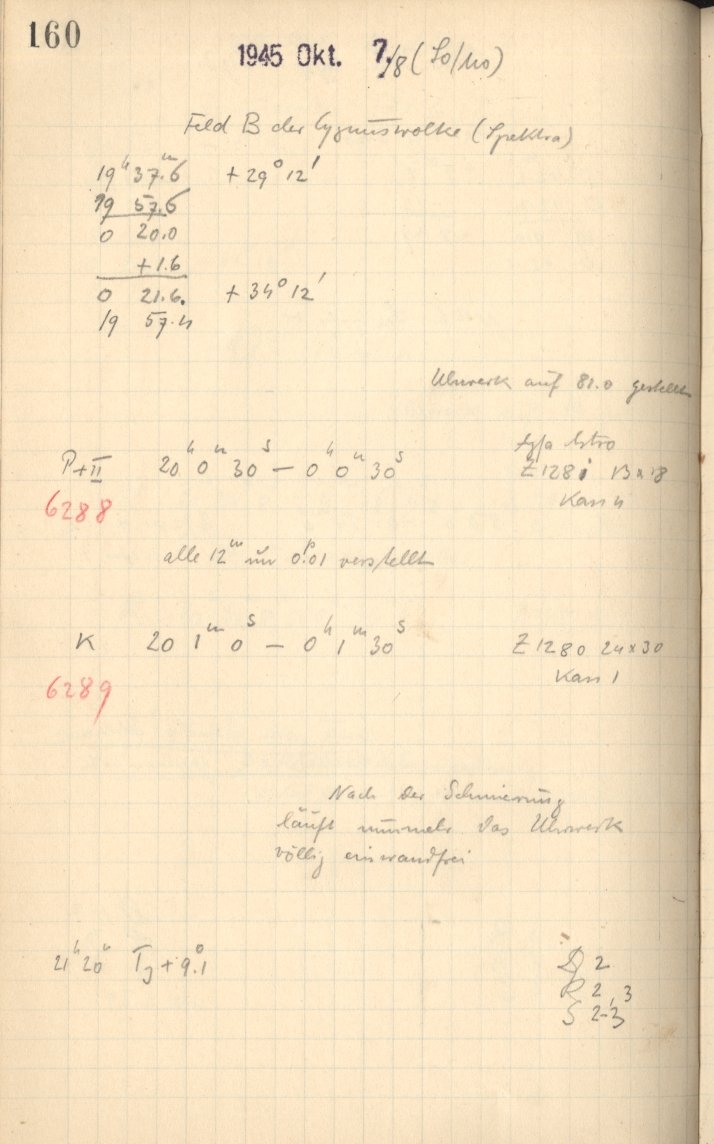 160
1945 Okt. 7./8 (So/Mo)
Feld B der Cygnuswolke (Spektra)
19ʰ 37.ᵐ6 + 29° 12'
19 57.6
0 20.0
+ 1.6
0 21.6. + 34° 12'
19 57.4
Uhrwerk auf 81.0 gestellt
Agfa Astro
P + II 20ʰ 0ᵐ 30ˢ — 0ʰ 0ᵐ 30ˢ Z 1281 13 x 18
Kass 4
6288
alle 12ᵐ um 0.ᵖ01 verstellt
K 20 1ᵐ 0ˢ — 0ʰ 1ᵐ 30ˢ Z 1280 24 x 30
Kass 1
6289
Nach der Schmierung
läuft nunmehr das Uhrwerk
völlig einwandfrei
21ʰ 20ᵐ + 9.°1 2
R 2,3
S 2-3